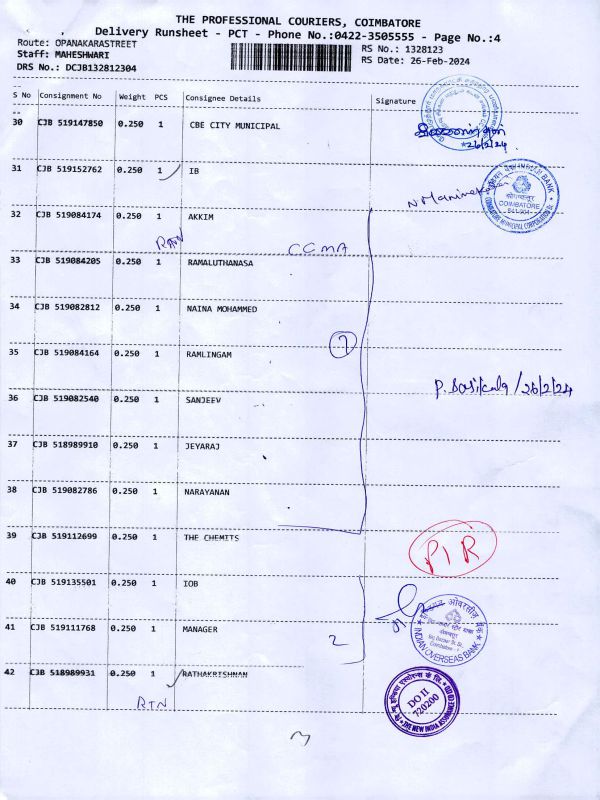 THE PROFESSIONAL COURIERS, COIMBATORE
Delivery Runsheet - PCT - Phone No.:0422-3505555 - Page No.:4
Route: OPANAKARASTREET
RS No.: 1328123
Staff: MAHESHWARI
RS Date: 26-Feb-2024
DRS No.: DCJB132812304
S No Consignment No Weight PCS Consignee Details Signature
30 CJB 519147850 0.250 1 CBE CITY MUNICIPAL
26/2/24
31 CJB 519152762 0.250 1 IB
COIMBATORE
641-904
32 CJB 519084174 0.250 1 AKKIM
CCMA
33 CJB 519084205 0.250 1 RAMALUTHANASA
34 CJB 519082812 0.250 1 NAINA MOHAMMED
7
35 CJB 519084164 0.250 1 RAMLINGAM
P. Sasikala /26/2/24
36 CJB 519082540 0.250 1 SANJEEV
37 CJB 518989910 0.250 1 JEYARAJ
38 CJB 519082786 0.250 1 NARAYANAN
39 CJB 519112699 0.250 1 THE CHEMITS
PIR
40 CJB 519135501 0.250 1 IOB
41 CJB 519111768 0.250 1 MANAGER
2
INDIAN OVERSEAS BANK
42 CJB 518989931 0.250 1 RATHAKRISHNAN
RTN
DO II
720200
THE NEW INDIA ASSURANCE